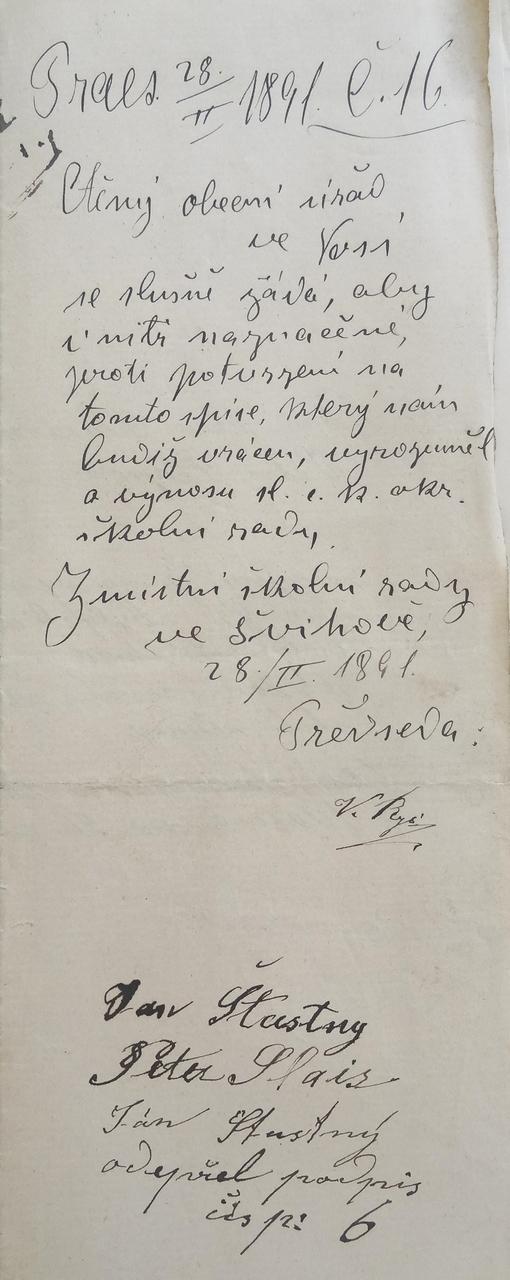 Praes. 28./II 1891. Č. 16.
Ctěný obecní úřad
ve Vosí
se slušně žádá, aby
v nitř naznačěné,
proti potvrzení na
tomto spise, který nám
budiž vrácen, vyrozuměl
o výnosu sl. c. k. okr.
školní rady,
Z místní školní rady
ve Švihově,
28./II. 1891.
Předseda:
V.
Jan Šťastný
Petr Slais
Ján Štastný
odepřel podpis
čís p: 6